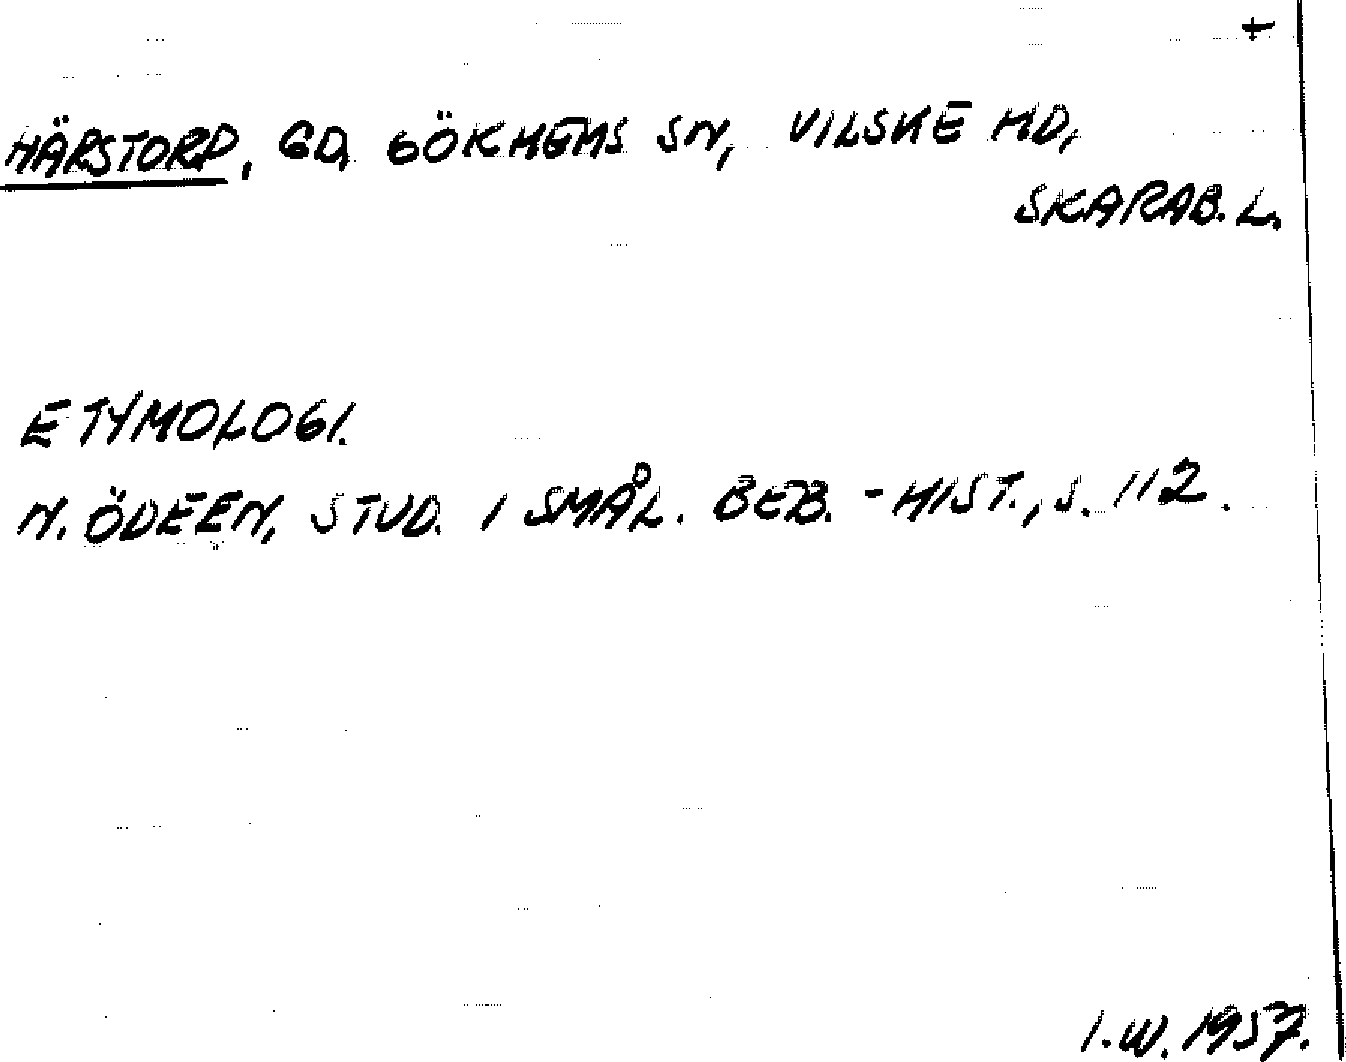 +
HÄRSTORP, GD, GÖKHEMS SN, VILSKE HD,
SKARAB. L.
ETYMOLOGI.
N. ÖDEEN, STUD. I SMÅL. BEB.-HIST., S. 112.
I.W. 1957.